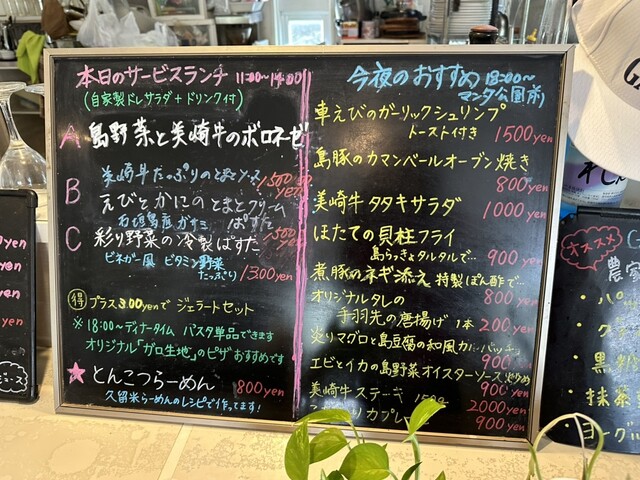 本日のサービスランチ 11:00〜14:00
(自家製ドレサラダ+ドリンク付)
A 島野菜と美崎牛のボロネーゼ
美崎牛たっぷりのとまとソース 1500yen
B えびとかにのとまとクリーム
石垣島産ガサミ ぱすた 1500yen
C 彩り野菜の冷製ぱすた
ビネガー風 ビタミン野菜
たっぷり 1300yen
得 プラス300yenで ジェラートセット
※18:00〜ディナータイム パスタ単品できます
オリジナル「ガロ生地」のピザ おすすめです
★とんこつらーめん 800yen
久留米らーめんのレシピで作ってます!
今夜のおすすめ 18:00〜
マンタ公園前
車えびのガーリックシュリンプ
トースト付き 1500yen
島豚のカマンベールオーブン焼き
800yen
美崎牛タタキサラダ
1000yen
ほたての貝柱フライ
島らっきょタルタルで… 900yen
煮豚のネギ添え 特製ぽん酢で…
800yen
オリジナルタレの
手羽先の唐揚げ 1本 200yen
炙りマグロと島豆腐の和風カルパッチョ
900
エビとイカの島野菜オイスターソース炒め
900yen
美崎牛ステーキ 150g
2000yen
カプレーゼ
900yen
yen
yen
yen
yen
オススメ
農家
抹茶
ヨーグル